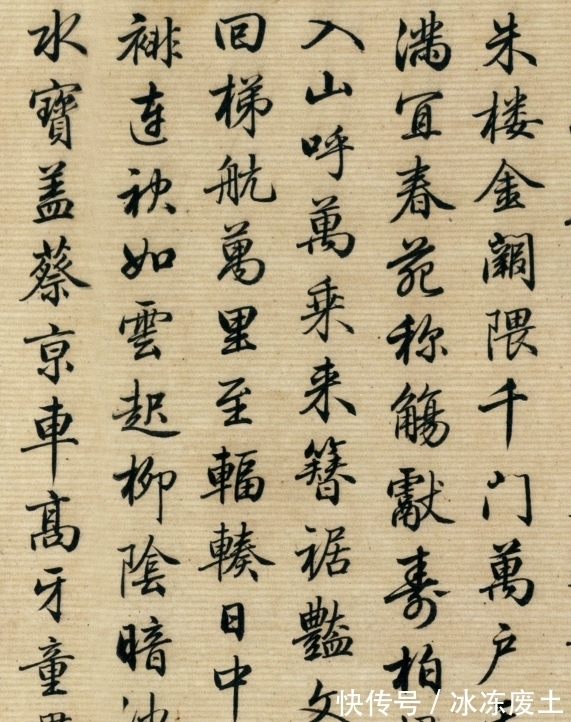 朱楼金闕隈千门萬户
滿宜春苑称觴獻壽柏
入山呼萬乗来簪裾豔文
回梯航萬里至輻輳日中
裶連袂如雲起柳陰暗
水寶盖蔡京車髙牙童
快传号 / 冰冻废土